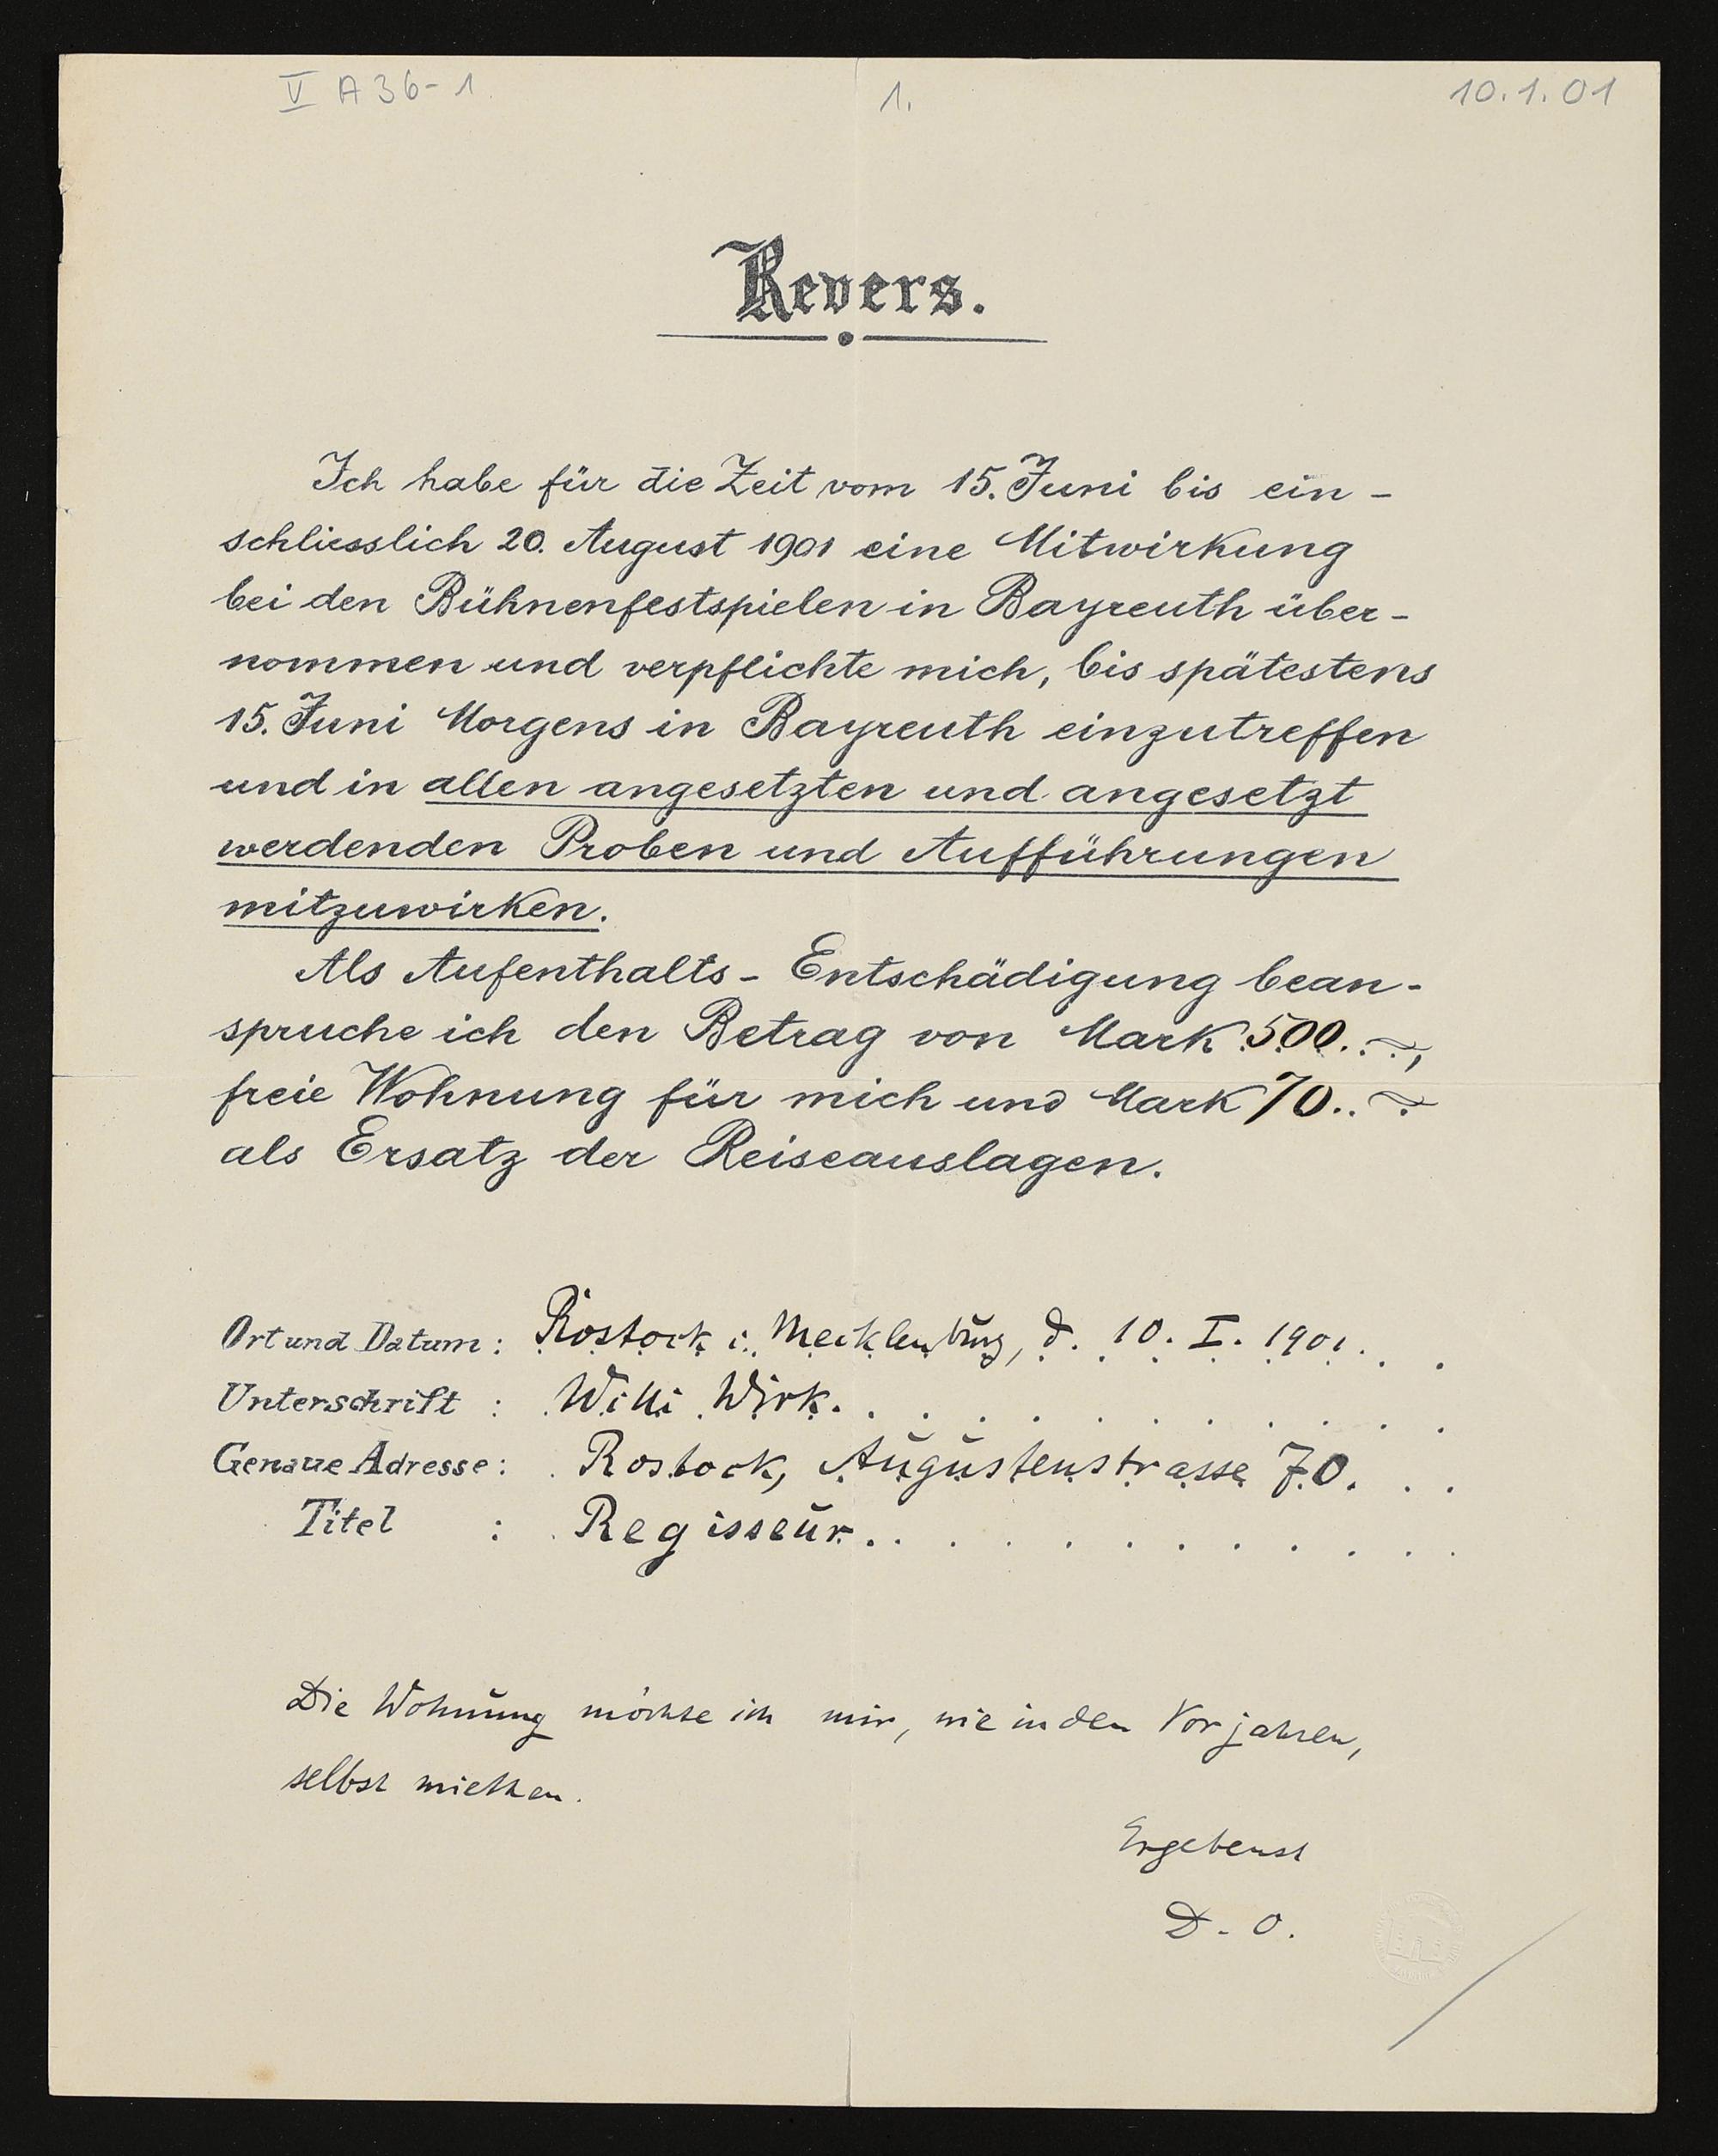 V A 36-1
1.
10.1.01
Revers.
Ich habe für die Zeit vom 15. Juni bis ein-
schliesslich 20. August 1901 eine Mitwirkung
bei den Bühnenfestspielen in Bayreuth über-
nommen und verpflichte mich, bis spätestens
15. Juni Morgens in Bayreuth einzutreffen
und in allen angesetzten und angesetzt
werdenden Proben und Aufführungen
mitzuwirken.
Als Aufenthalts-Entschädigung bean-
spruche ich den Betrag von Mark 500.
freie Wohnung für mich und Mark 70.
als Ersatz der Reiseauslagen.
Ort und Datum: Rostock i. Mecklenburg, d. 10. I. 1901.
Unterschrift : Willi Wirk.
Genaue Adresse: Rostock, Augustenstrasse 70.
Titel : Regisseur.
Die Wohnung möchte ich mir, wie in den Vorjahren,
selbst miethen.
Ergebenst
D. O.